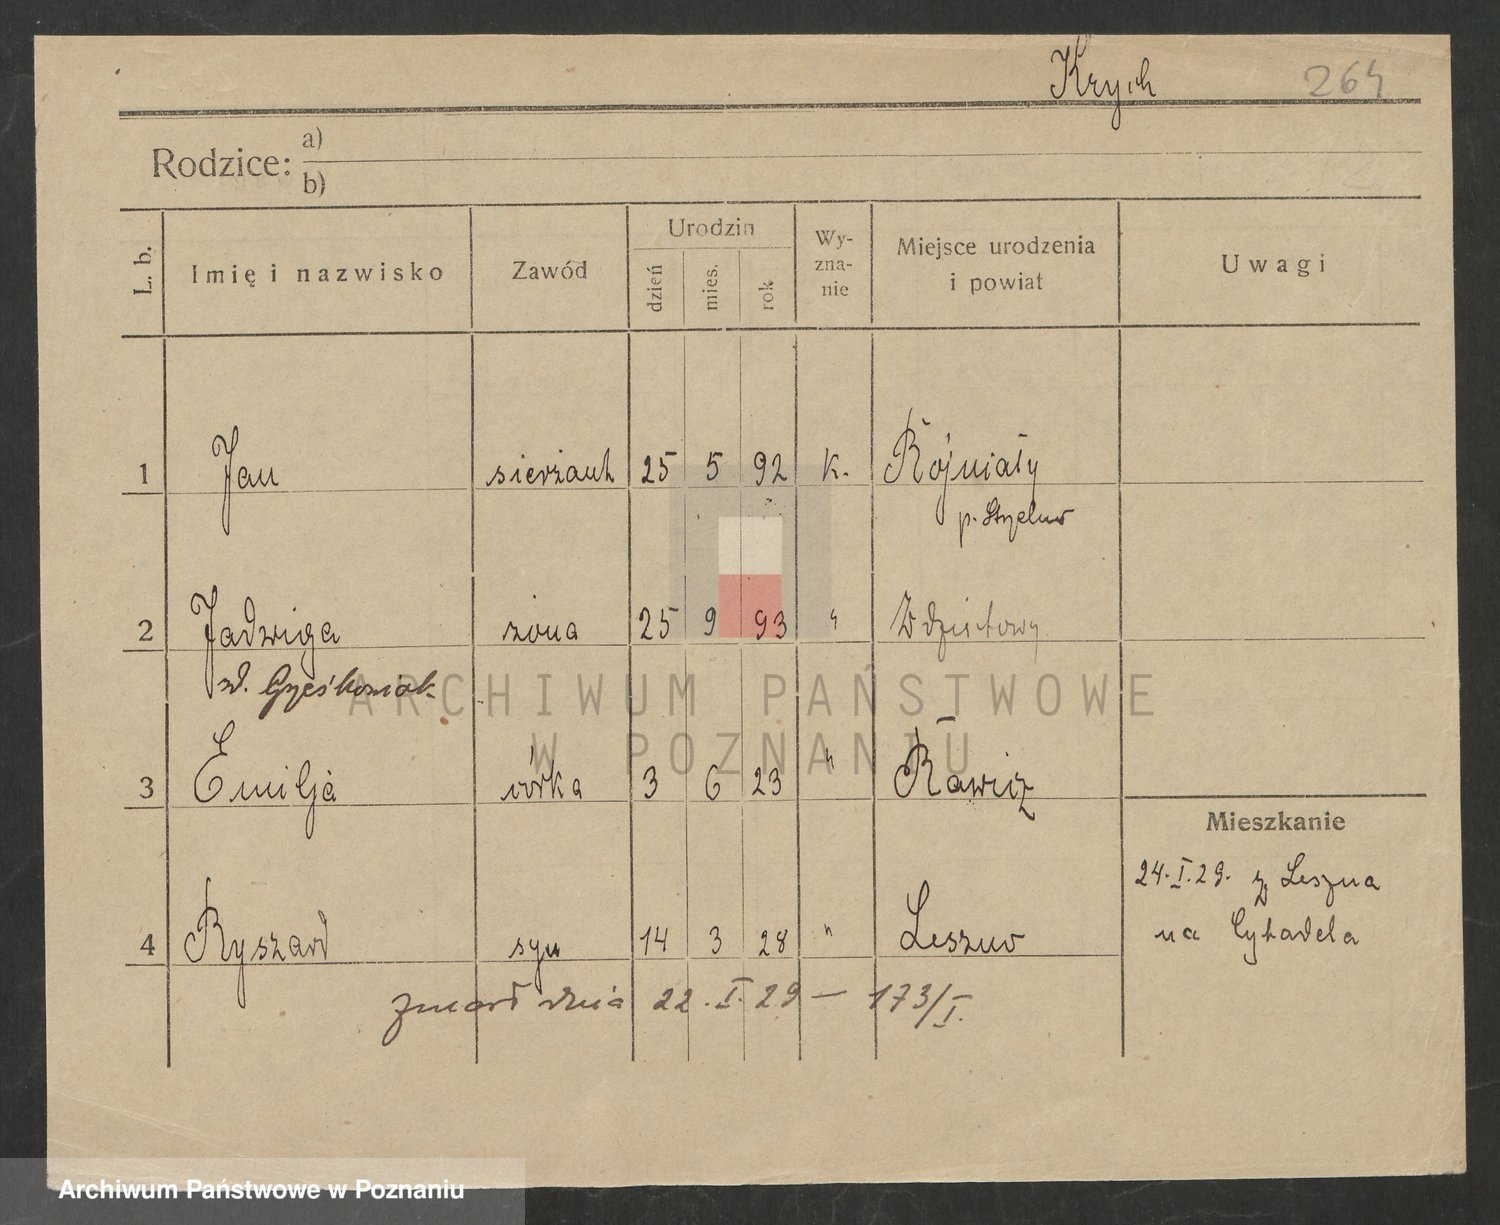 Krych 264
Rodzice: a)
b)
L. b. Imię i nazwisko Zawód Urodzin dzień mies. rok Wy-zna-nie Miejsce urodzenia i powiat Uwagi
1 Jan sierżant 25 5 92 K. Rojmiały
p.
2 Jadwiga żona 25 9 93 "
3 Emilja córka 3 6 23 " Rawicz
Mieszkanie
24.I.29. z Leszna
na Cytadela
4 Ryszard syn 14 3 28 " Leszno
zmarł dnia 22.I.29 — 173/I.
ARCHIWUM PAŃSTWOWE
W POZNANIU
Archiwum Państwowe w Poznaniu